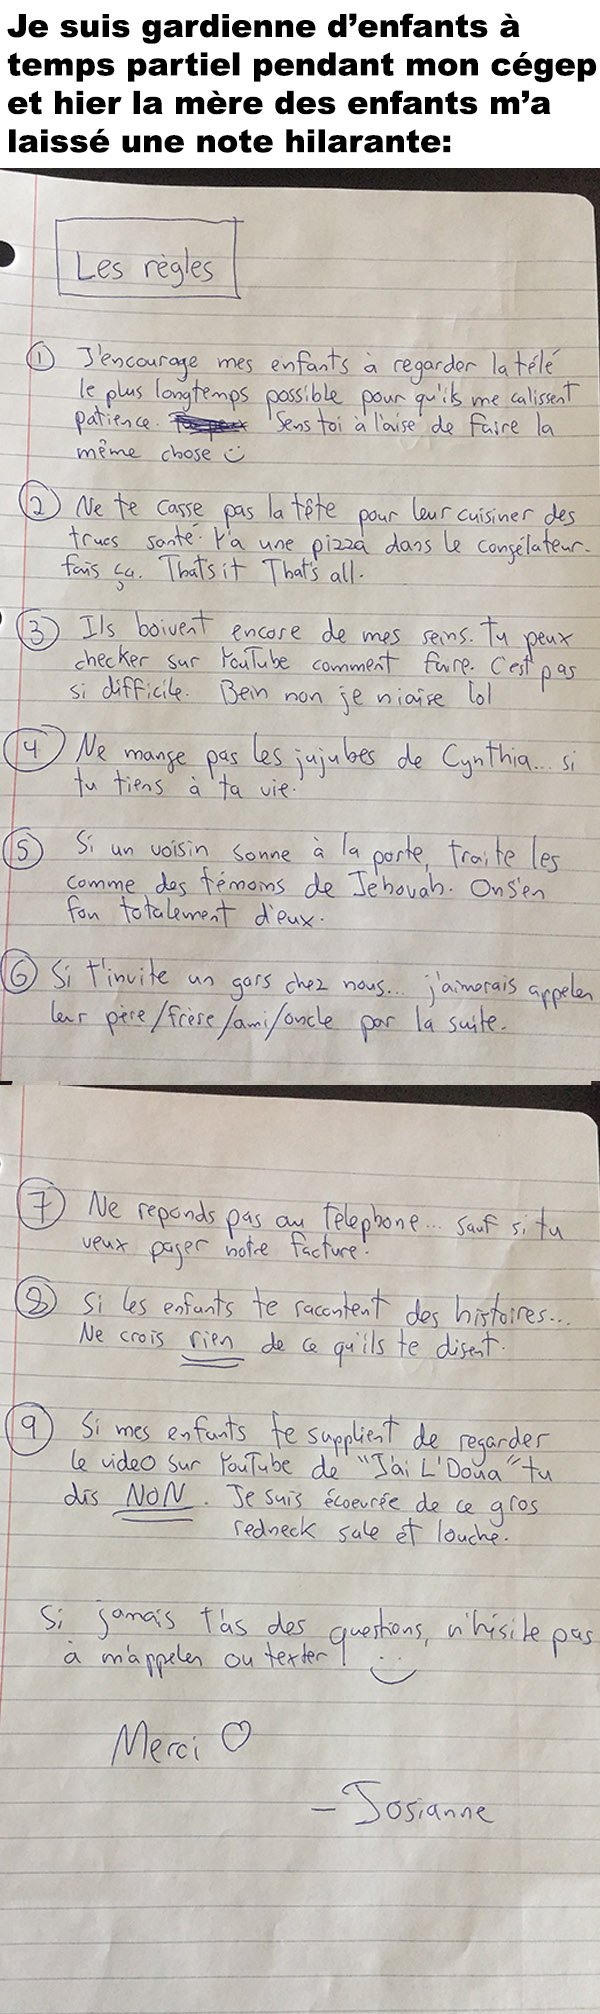 Je suis gardienne d'enfants à
temps partiel pendant mon cégep
et hier la mère des enfants m'a
laissé une note hilarante:
Les règles
① J'encourage mes enfants à regarder la télé
le plus longtemps possible pour qu'ils me calissent
patience. Sens toi à l'aise de faire la
même chose
② Ne te casse pas la tête pour leur cuisiner des
trucs santé. Y'a une pizza dans le congélateur.
fais ça. That's it That's all.
③ Ils boivent encore de mes seins. Tu peux
checker sur YouTube comment faire. C'est pas
si difficile. Bein non je niaise lol
④ Ne mange pas les jujubes de Cynthia... si
tu tiens à ta vie.
⑤ Si un voisin sonne à la porte, traite les
comme des témoins de Jehovah. On s'en
fou totalement d'eux.
⑥ Si t'invite un gars chez nous... j'aimerais appeler
leur père/frère/ami/oncle par la suite.
⑦ Ne reponds pas au télephone... sauf si tu
veux payer notre facture.
⑧ Si les enfants te racontent des histoires...
Ne crois rien de ce qu'ils te disent.
⑨ Si mes enfants te supplient de regarder
le video sur YouTube de "J'ai L'Doua" tu
dis NON. Je suis écoeurée de ce gros
redneck sale et louche.
Si jamais t'as des questions, n'hésite pas
à m'appeler ou texter!
Merci ♡
- Josianne